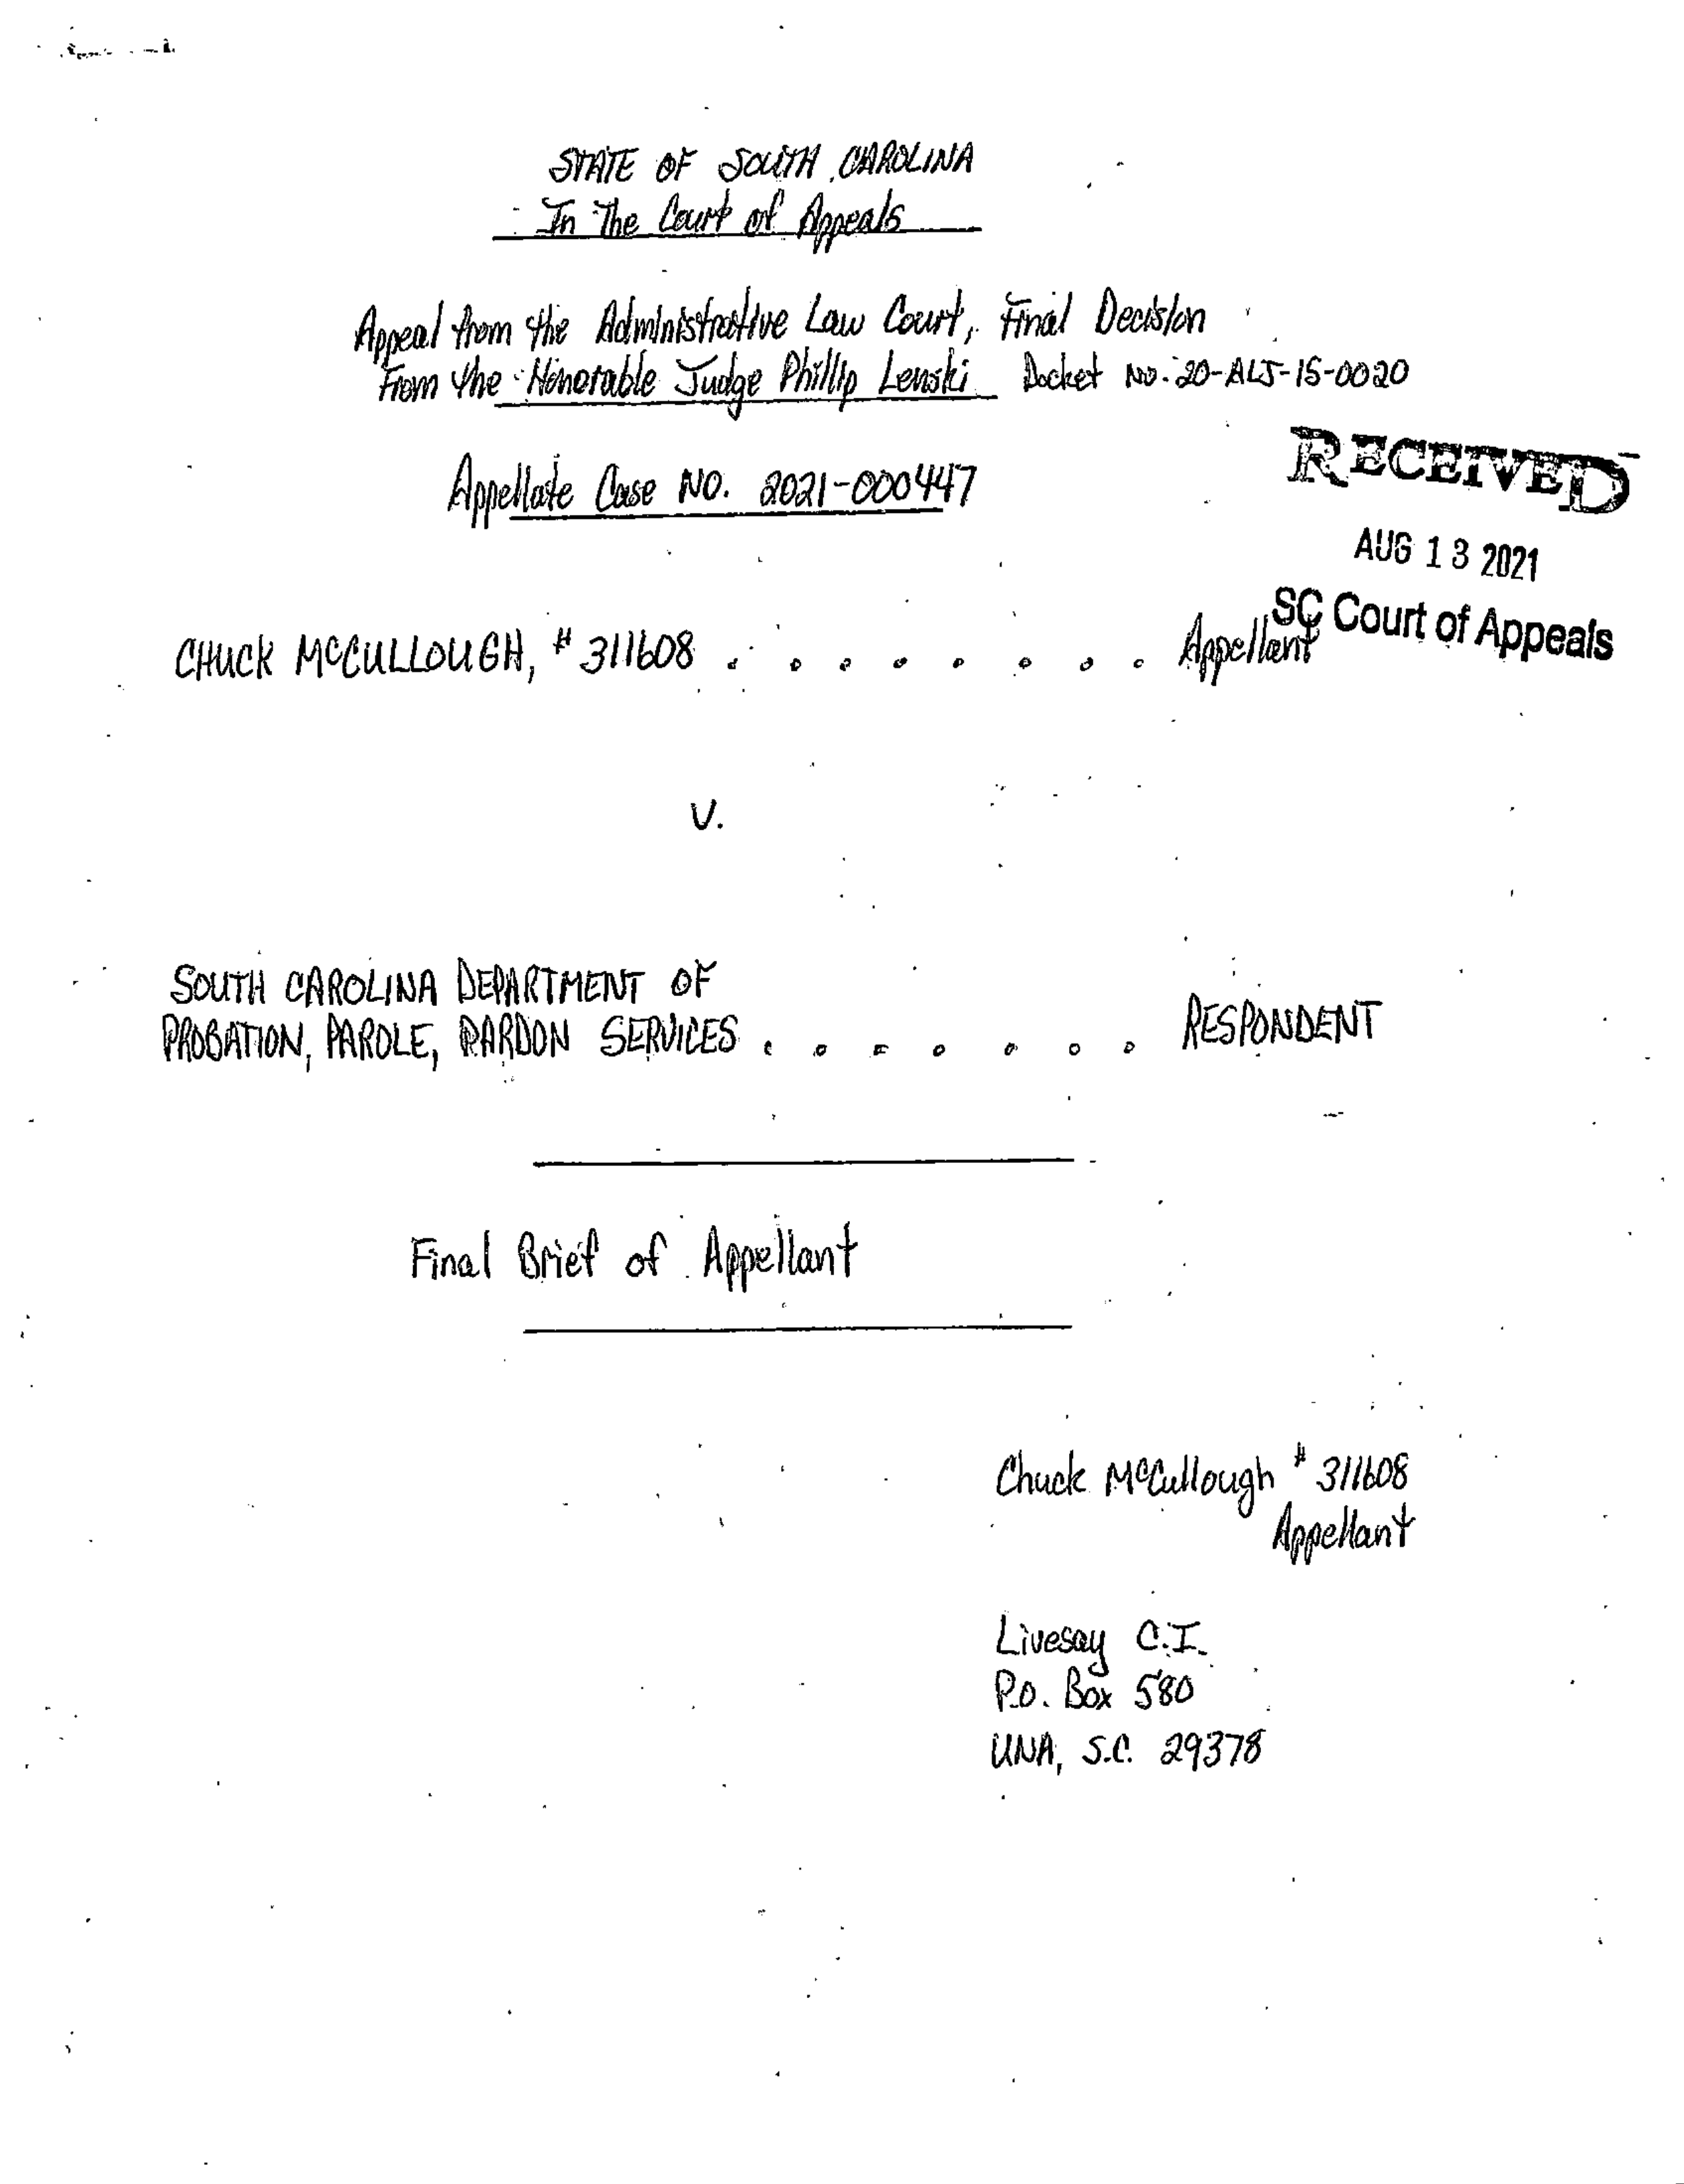 STATE OF SOUTH CAROLINA
In The Court of Appeals
Appeal from the Administrative Law Court, Final Decision
From the Honorable Judge Phillip Lenski Docket No. 20-ALJ-15-0020
RECEIVED
Appellate Case NO. 2021-000447
AUG 13 2021
SC Court of Appeals
CHUCK MCCULLOUGH, # 311608 . . . . . . . . Appellant
V.
SOUTH CAROLINA DEPARTMENT OF
PROBATION, PAROLE, PARDON SERVICES . . . . . . . RESPONDENT
Final Brief of Appellant
Chuck McCullough # 311608
Appellant
Livesay C.I.
P.O. Box 580
UNA, S.C. 29378